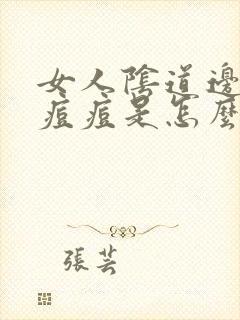 女人陰道邊
痘痘是怎麼
張芸